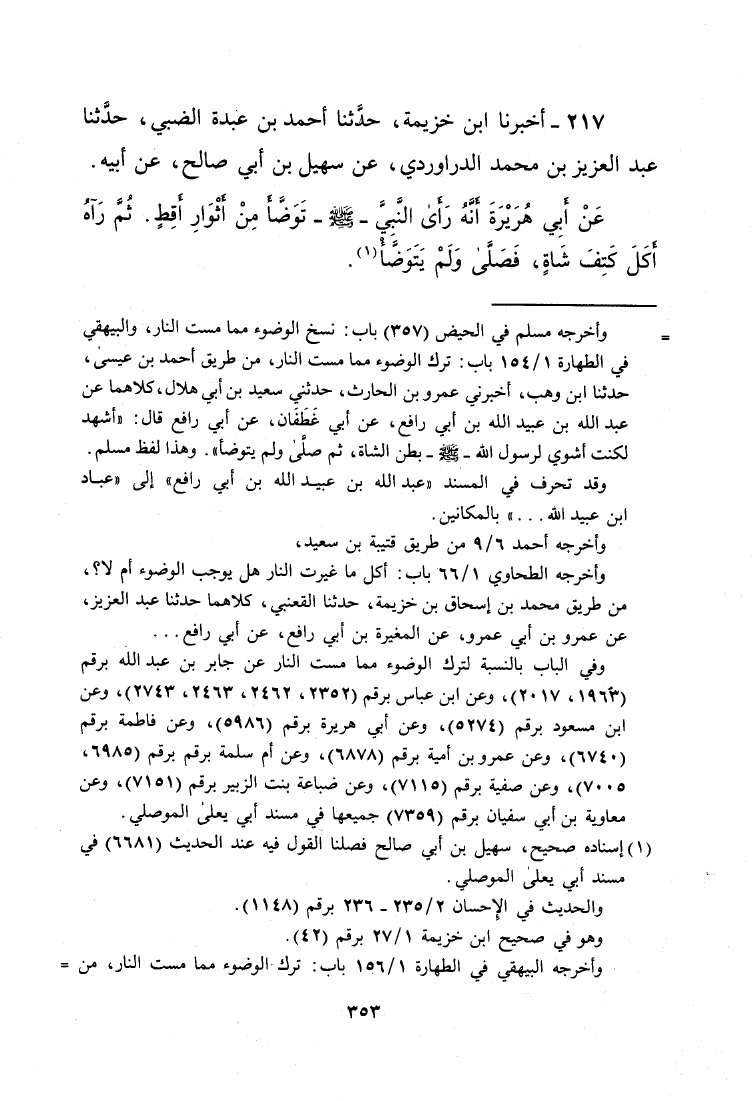 ٢١٧ - أخبرنا ابن خزيمة، حدَّثنا أحمد بن عبدة الضبي، حدَّثنا
عبد العزيز بن محمد الدراوردي، عن سهيل بن أبي صالح، عن أبيه.
عَنْ أَبِي هُرَيْرَةَ أَنَّهُ رَأَىٰ النَّبِيَّ - ﷺ - تَوَضَّأَ مِنْ أَثْوَارِ أَقِطٍ. ثُمَّ رَآهُ
أَكَلَ كَتِفَ شَاةٍ، فَصَلَّىٰ وَلَمْ يَتَوَضَّأْ(١).
= وأخرجه مسلم في الحيض (٣٥٧) باب: نسخ الوضوء مما مست النار، والبيهقي
في الطهارة ١/١٥٤ باب: ترك الوضوء مما مست النار، من طريق أحمد بن عيسىٰ،
حدثنا ابن وهب، أخبرني عمرو بن الحارث، حدثني سعيد بن أبي هلال، كلاهما عن
عبد الله بن عبيد الله بن أبي رافع، عن أبي غَطَفَان، عن أبي رافع قال: «أشهد
لكنت أشوي لرسول الله - ﷺ - بطن الشاة، ثم صلَّىٰ ولم يتوضأ». وهذا لفظ مسلم.
وقد تحرف في المسند «عبد الله بن عبيد الله بن أبي رافع» إلى «عباد
ابن عبيد الله...» بالمكانين.
وأخرجه أحمد ٩/٦ من طريق قتيبة بن سعيد،
وأخرجه الطحاوي ٦٦/١ باب: أكل ما غيرت النار هل يوجب الوضوء أم لا؟،
من طريق محمد بن إسحاق بن خزيمة، حدثنا القعنبي، كلاهما حدثنا عبد العزيز،
عن عمرو بن أبي عمرو، عن المغيرة بن أبي رافع، عن أبي رافع...
وفي الباب بالنسبة لترك الوضوء مما مست النار عن جابر بن عبد الله برقم
(١٩٦٣، ٢٠١٧)، وعن ابن عباس برقم (٢٣٥٢، ٢٤٦٢، ٢٤٦٣، ٢٧٤٣)، وعن
ابن مسعود برقم (٥٢٧٤)، وعن أبي هريرة برقم (٥٩٨٦)، وعن فاطمة برقم
(٦٧٤٠)، وعن عمرو بن أمية برقم (٦٨٧٨)، وعن أم سلمة برقم برقم (٦٩٨٥،
٧٠٠٥)، وعن صفية برقم (٧١١٥)، وعن ضباعة بنت الزبير برقم (٧١٥١)، وعن
معاوية بن أبي سفيان برقم (٧٣٥٩) جميعها في مسند أبي يعلىٰ الموصلي.
(١) إسناده صحيح، سهيل بن أبي صالح فصلنا القول فيه عند الحديث (٦٦٨١) في
مسند أبي يعلىٰ الموصلي.
والحديث في الإحسان ٢٣٥/٢ - ٢٣٦ برقم (١١٤٨).
وهو في صحيح ابن خزيمة ٢٧/١ برقم (٤٢).
وأخرجه البيهقي في الطهارة ١٥٦/١ باب: ترك الوضوء مما مست النار، من =
٣٥٣